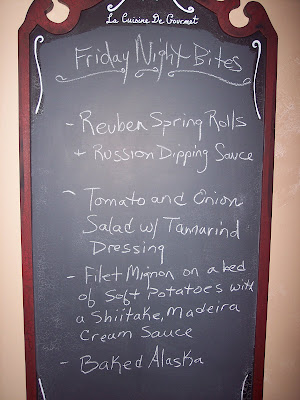 La Cuisine De Gourmet
Friday Night Bites
- Reuben Spring Rolls
+ Russion Dipping Sauce
- Tomato and Onion
Salad w/ Tamarind
Dressing
- Filet Mignon on a bed
of Soft Potatoes with
a Shiitake, Madeira
Cream Sauce
- Baked Alaska